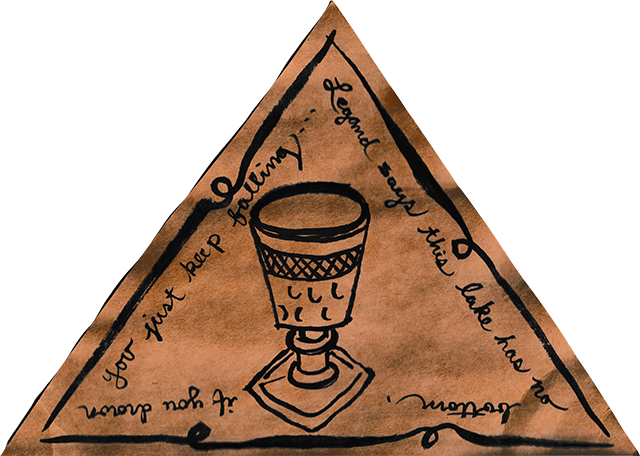 Legend says this lake has no
bottom. if you drown
you just keep falling...